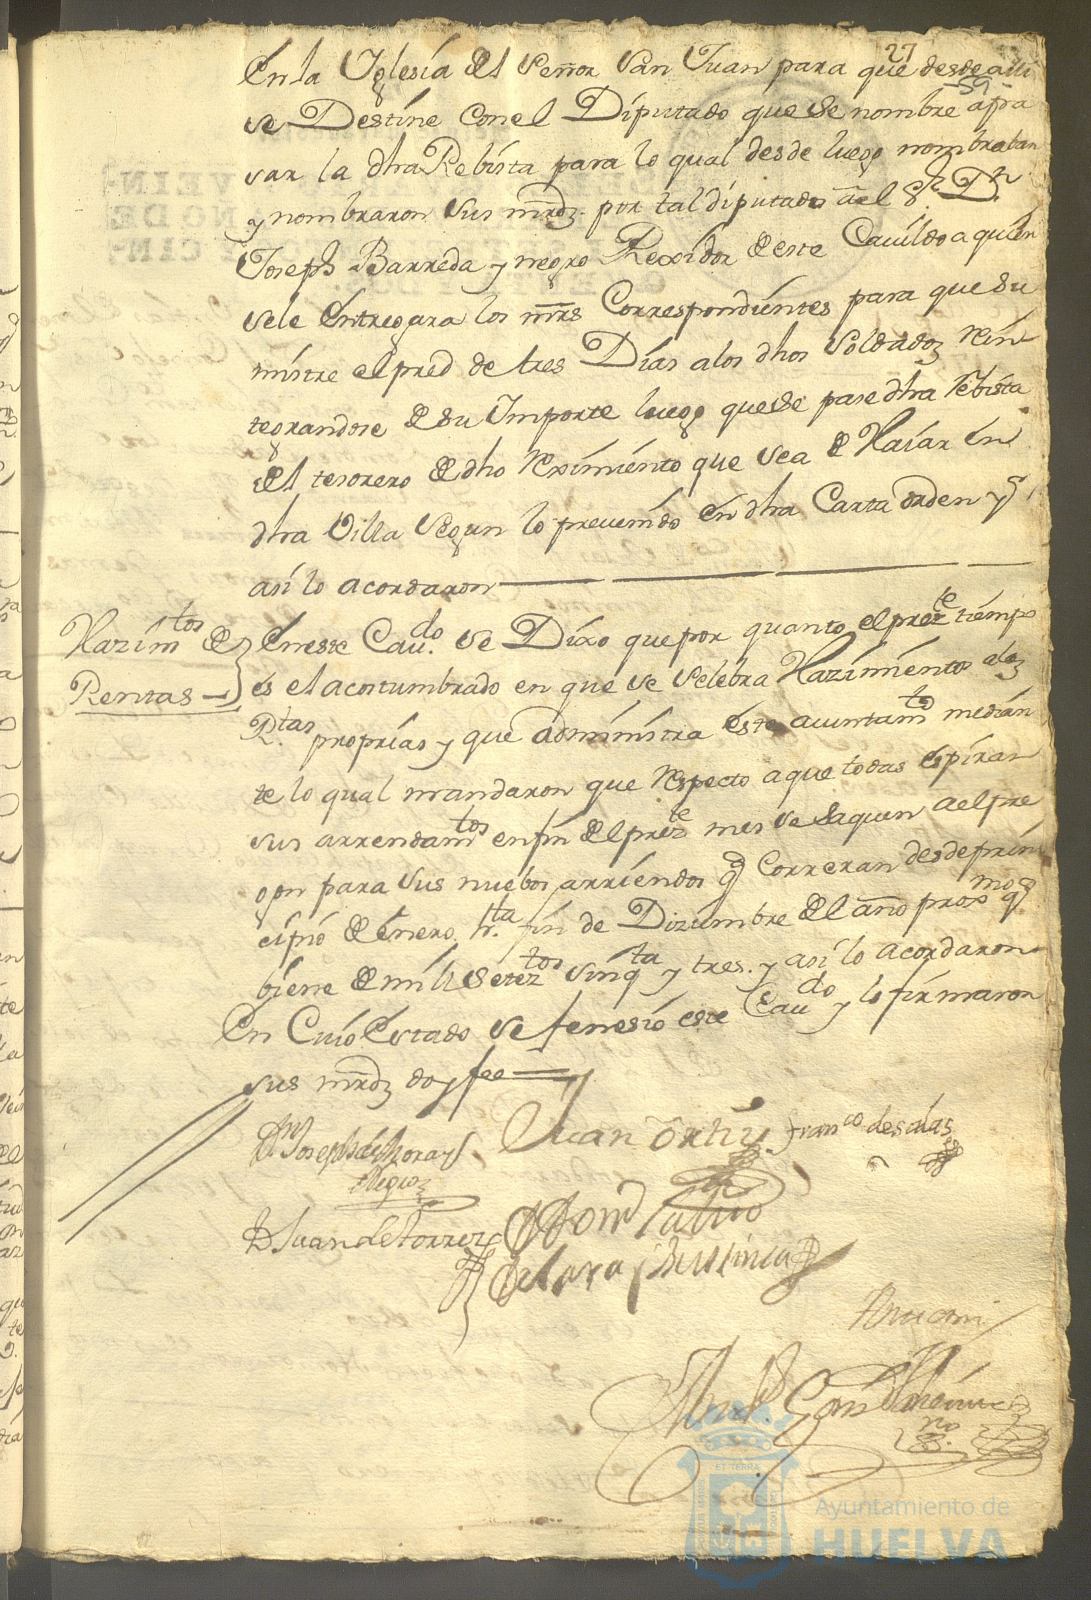 27
59
En la Yglesia del Señor San Juan para que desde alli
se Destine con el Diputado que se nombre a pa
sar la dha Rebista para lo qual desde luego nombraban
y nombraron sus mrdz. por tal diputado a el Sr. Dn.
Joseph Barreda y negro Rexidor de este Cavildo a quien
se le entregara los mrs Correspondientes para que su
ministre el pred de tres Dias a los dhos Soldados Rein
tegrandose de su Importe luego que se pase dha Rebista
del tesorero de dho Reximiento que sea de Haiar en
dha Villa segun lo prevenido en dha Carta orden y
asi lo acordaron
Hazimtos de
Rentas
En este Caudo. se Dixo que por quanto el preste tiempo
es el acostumbrado en que se selebra Hazimientos a las
Rtas proprias y que administra este aiuntamto median
te lo qual mandaron que Respecto a que todas espiran
sus arrendamtos en fin del preste mes se saquen a el pre
gon para sus nuebos arriendos q correran desde prin
cipio de enero hta. fin de Diziembre del año proxmo q
biene de mill seteztos sinqta y tres. y asi lo acordaron
En Cuio Estado se fenesio este Caudo y lo firmaron
sus mrdz doy fee
Dn Joseph de Mora y
Negro
Juan Ortiz
Franco de salas
D Juan de Torres
de Lara
Ante mi
no
VEIN-
NODE
CIN-
Ayuntamiento de
HUELVA